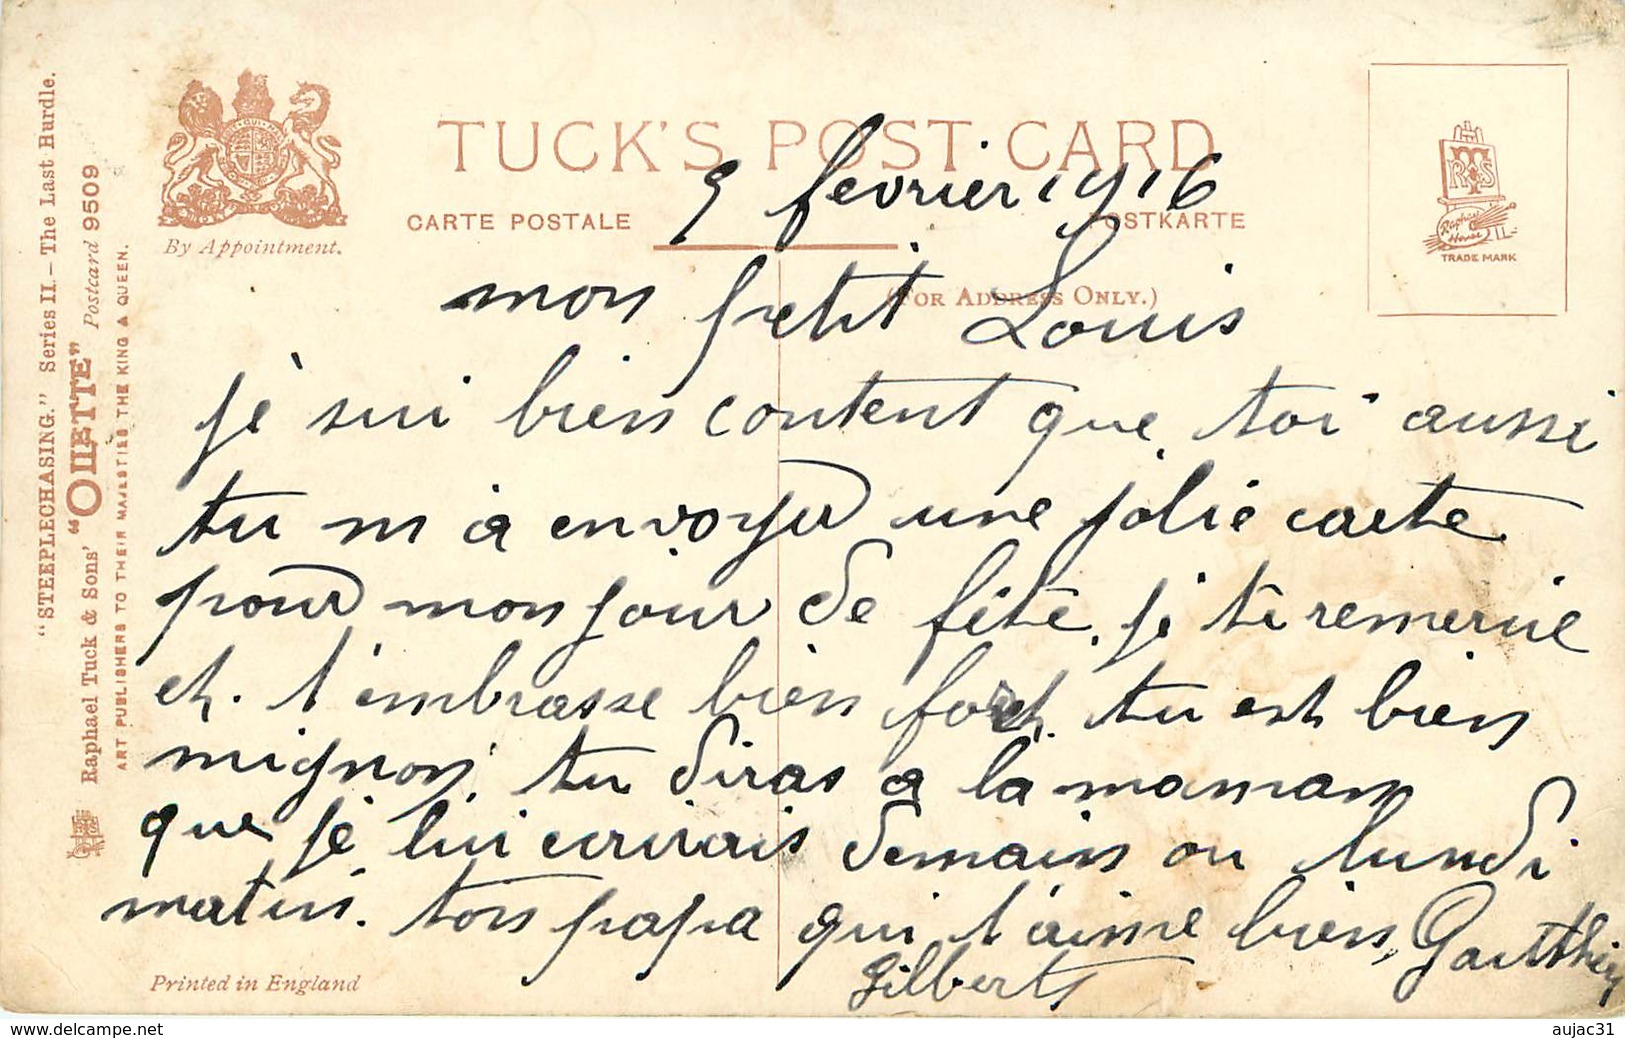 TUCK'S POST CARD
CARTE POSTALE
POSTKARTE
(FOR ADDRESS ONLY.)
By Appointment.
TRADE MARK
"STEEPLECHASING." Series II.–The Last Hurdle.
Raphael Tuck & Sons' "OILETTE" Postcard 9509
ART PUBLISHERS TO THEIR MAJESTIES THE KING & QUEEN.
9 fevrier 1916
mon petit Louis
je sui bien content que toi aussi
tu m a envoyer une jolie carte
pour mon jour de fête. je te remercie
et t'embrasse bien fort tu est bien
mignon, tu diras a la maman
que je lui ecrirais demain ou lundi
matin. ton papa qui t'aime bien,
Gilbert
Printed in England
www.delcampe.net
aujac31